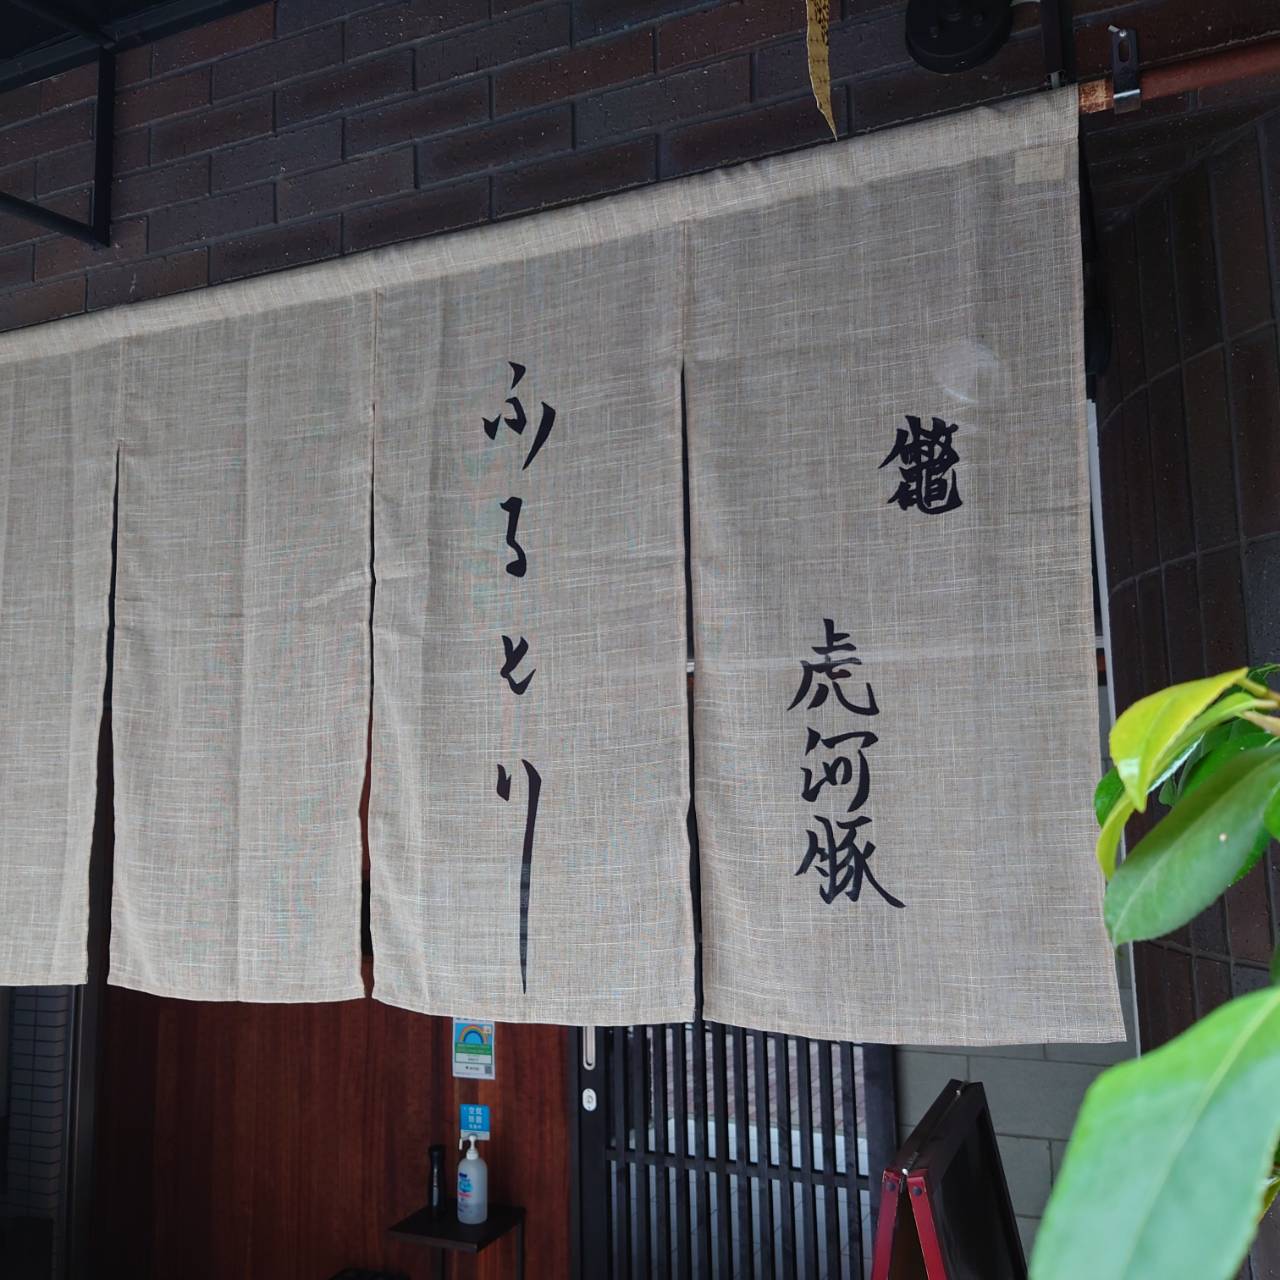 鼈
虎河豚
ふるとり